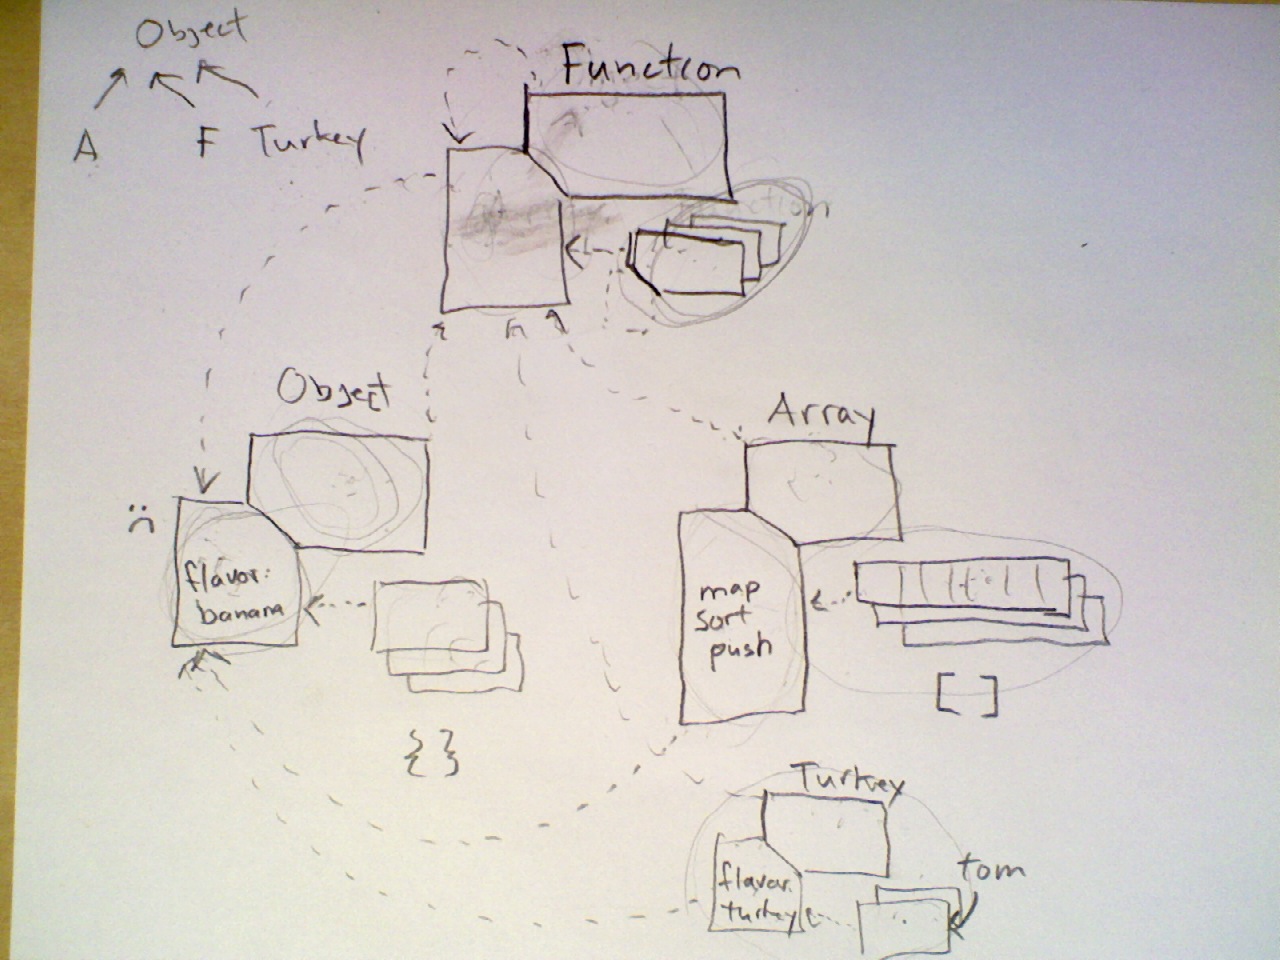 Object
A F Turkey
Function
Object
Array
flavor:
banana
map
sort
push
{}
[ ]
Turkey
flavor:
turkey
tom